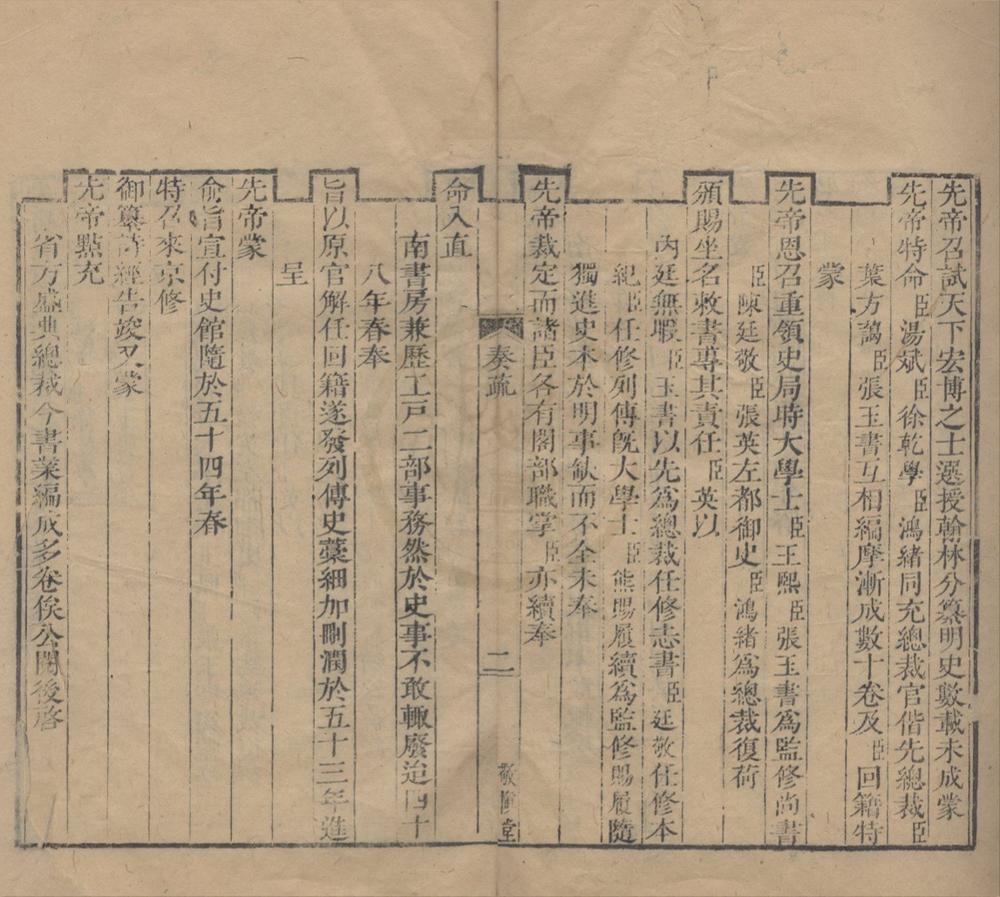 先帝召試天下宏博之士選授翰林分纂明史數載未成蒙
先帝特命臣湯斌臣徐乾學臣鴻緒同充總裁官偕先總裁臣
葉方藹臣張玉書互相編摩漸成數十卷及臣回籍特
蒙
先帝恩召重領史局時大學士臣王熙臣張玉書爲監修尚書
臣陳廷敬臣張英左都御史臣鴻緒爲總裁復荷
頒賜坐名敕書專其責任臣英以
內廷無暇臣玉書以先爲總裁任修志書臣廷敬任修本
紀臣任修列傳旣大學士臣熊賜履續爲監修賜履隨
獨進史本於明事缺而不全未奉
先帝裁定而諸臣各有閣部職掌臣亦續奉
奏疏
二
敬慎堂
命入直
南書房兼歷工戸二部事務然於史事不敢輙廢迨四十
八年春奉
旨以原官解任回籍遂發列傳史藁細加刪潤於五十三年進
呈
先帝蒙
俞旨宣付史館隨於五十四年春
特召來京修
御纂詩經告竣又蒙
先帝點充
省方盛典總裁今書業編成多卷俟公閱後啓